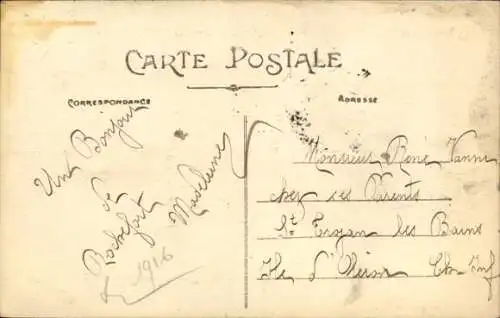 CARTE POSTALE
CORRESPONDANCE
ADRESSE
Un Bonjour
de
Rochefort
Madeleine
1916
Monsieur René Vanne
chez ses Parents
St Trojan les Bains
Ile d'Oleron Ch. Inf